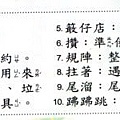 約。
用來
、拉
具。
5. 簸仔店：
6. 攢：準
7. 規陣：整
8. 拄著：遇
9. 尾溜：尾
10. 踢踢跳：